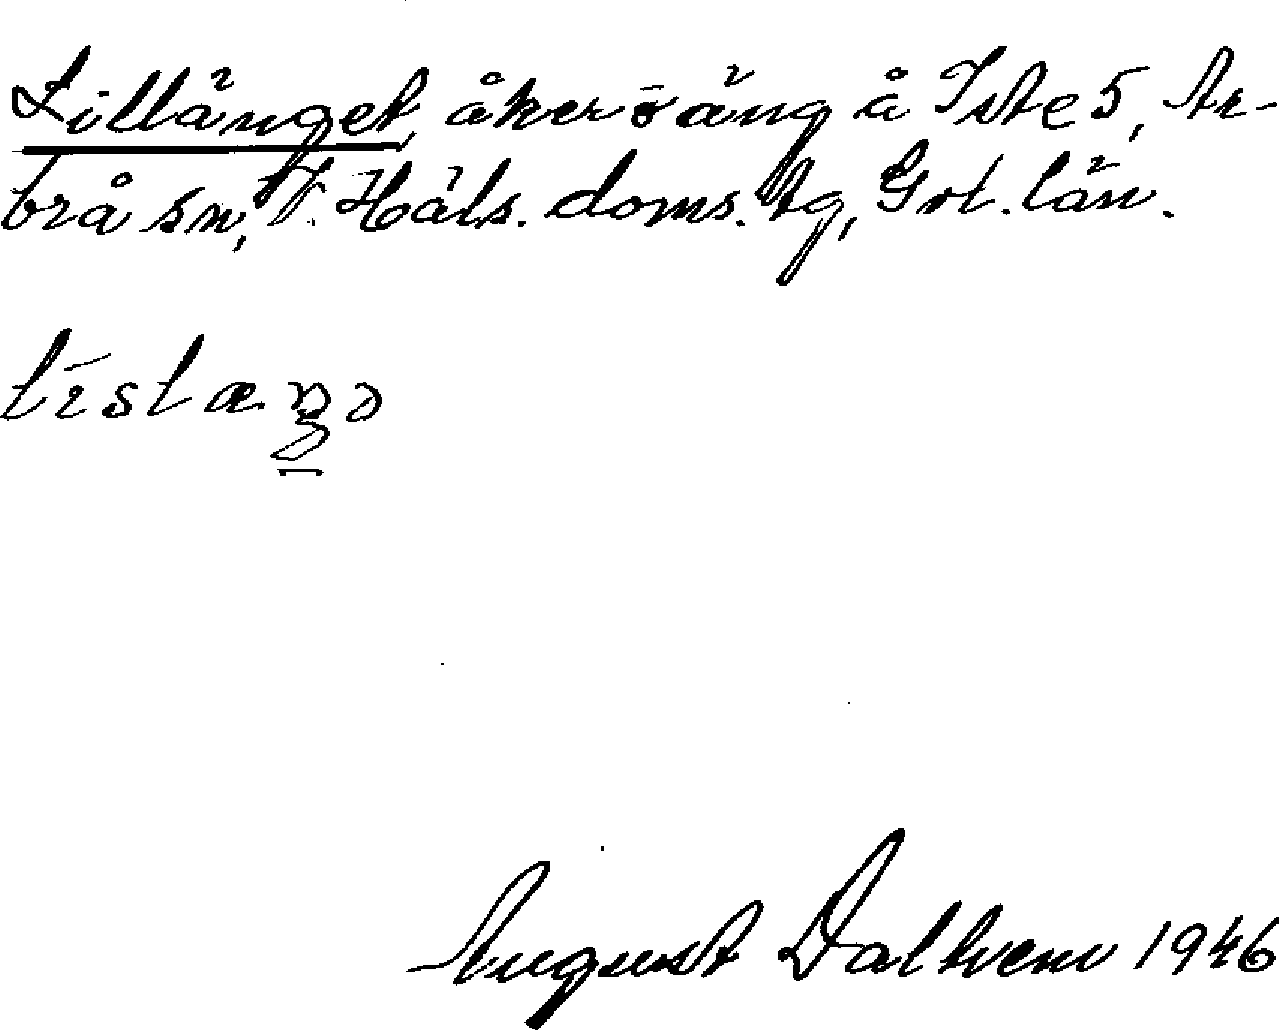 Lillänget, åker o äng å Iste 5, Ar-
brå sn, V. Häls. doms. tg, Gvl. län.
August Dalkvem 1946